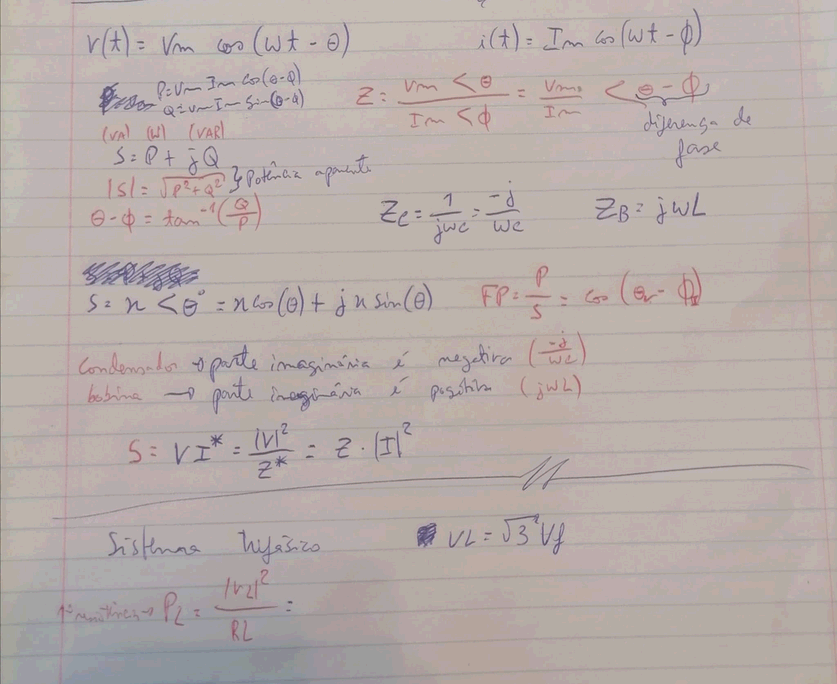 v(t) = Vm cos(wt - θ)    i(t) = Im cos(wt - ϕ)
P = Vm Im cos(θ-ϕ)
Q = Vm Im sin(θ-ϕ)
Z = Vm<θ / Im<ϕ = Vm / Im < θ - ϕ
diferença de
fase
(VA) (W) (VAR)
S = P + jQ
|S| = √(P²+Q²) } Potência aparente
θ-ϕ = tan⁻¹(Q/P)    Zc = 1/jwc = -j/wc    ZB = jwL
S = x <θ° = x cos(θ) + j x sin(θ)    FP = P/S = cos(θv - ϕI)
Condensador → parte imaginária é negativa (-j/wc)
bobina → parte imaginária é positiva (jwL)
S = VI* = |V|²/Z* = Z · |I|²
Sistema trifásico    VL = √3 Vf
PL = |VL|²/RL =